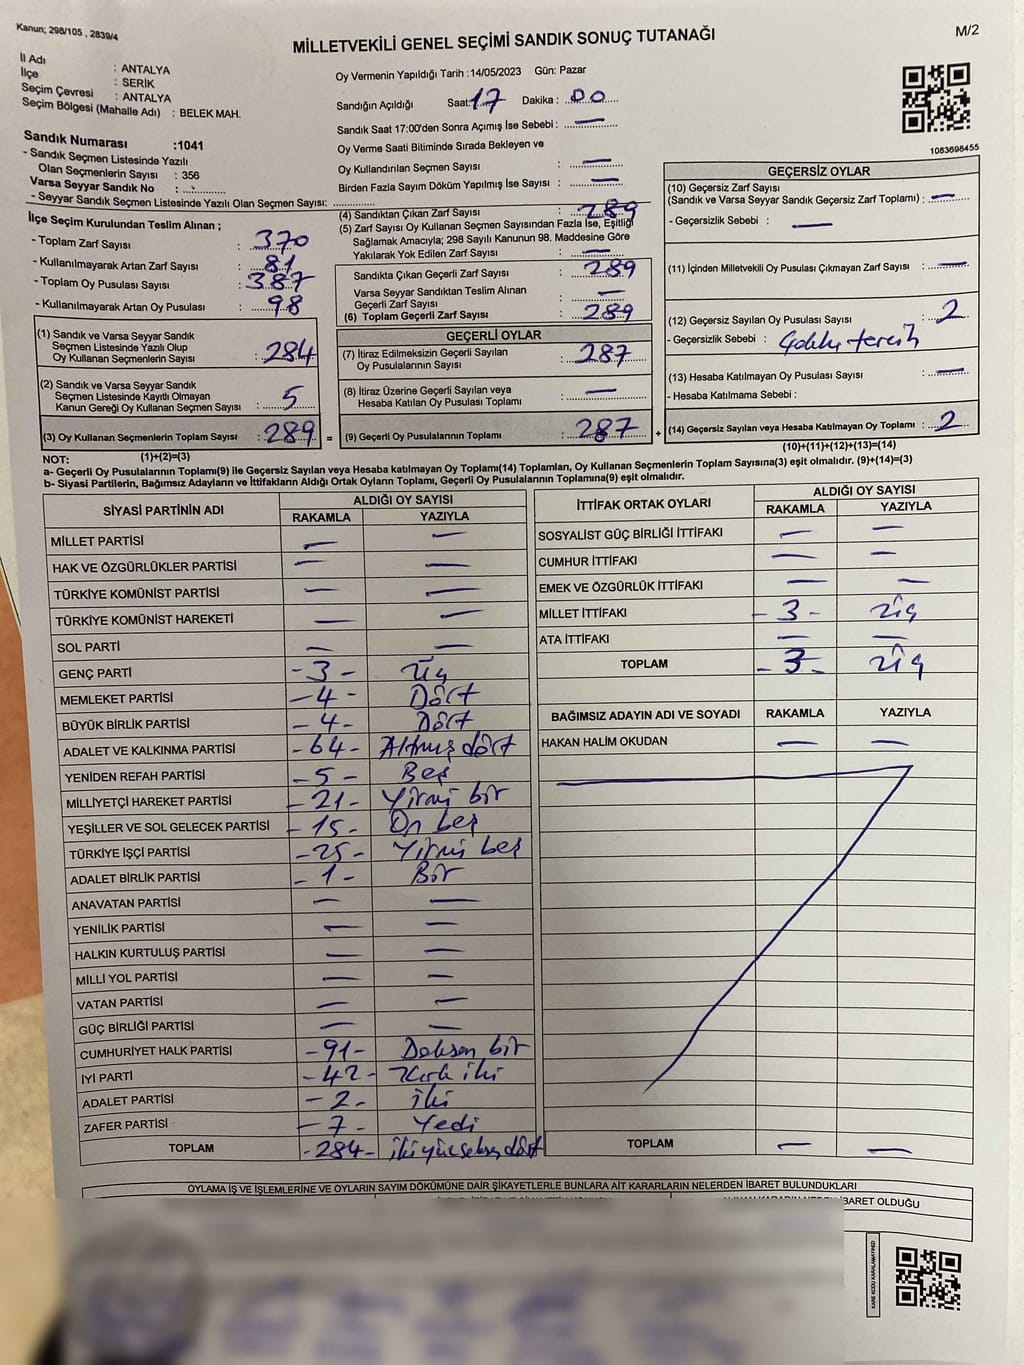 Kanun; 298/105 , 2839/4
M/2
MİLLETVEKİLİ GENEL SEÇİMİ SANDIK SONUÇ TUTANAĞI
İl Adı : ANTALYA
İlçe : SERİK
Seçim Çevresi : ANTALYA
Seçim Bölgesi (Mahalle Adı) : BELEK MAH.
Sandık Numarası :1041
- Sandık Seçmen Listesinde Yazılı
Olan Seçmenlerin Sayısı : 356
Varsa Seyyar Sandık No :
- Seyyar Sandık Seçmen Listesinde Yazılı Olan Seçmen Sayısı:
Oy Vermenin Yapıldığı Tarih :14/05/2023 Gün: Pazar
Sandığın Açıldığı Saat:17 Dakika : 00
Sandık Saat 17:00'den Sonra Açımış İse Sebebi : —
Oy Verme Saati Bitiminde Sırada Bekleyen ve
Oy Kullandırılan Seçmen Sayısı : —
Birden Fazla Sayım Döküm Yapılmış İse Sayısı : —
1083698455
İlçe Seçim Kurulundan Teslim Alınan ;
- Toplam Zarf Sayısı : 370
- Kullanılmayarak Artan Zarf Sayısı : 81
- Toplam Oy Pusulası Sayısı : 387
- Kullanılmayarak Artan Oy Pusulası : 98
(1) Sandık ve Varsa Seyyar Sandık
Seçmen Listesinde Yazılı Olup
Oy Kullanan Seçmenlerin Sayısı : 284
(2) Sandık ve Varsa Seyyar Sandık
Seçmen Listesinde Kayıtlı Olmayan
Kanun Gereği Oy Kullanan Seçmen Sayısı : 5
(3) Oy Kullanan Seçmenlerin Toplam Sayısı : 289 =
(1)+(2)=(3)
(4) Sandıktan Çıkan Zarf Sayısı : 289
(5) Zarf Sayısı Oy Kullanan Seçmen Sayısından Fazla İse, Eşitliği
Sağlamak Amacıyla; 298 Sayılı Kanunun 98. Maddesine Göre
Yakılarak Yok Edilen Zarf Sayısı : —
Sandıkta Çıkan Geçerli Zarf Sayısı : 289
Varsa Seyyar Sandıktan Teslim Alınan
Geçerli Zarf Sayısı : —
(6) Toplam Geçerli Zarf Sayısı : 289
GEÇERLİ OYLAR
(7) İtiraz Edilmeksizin Geçerli Sayılan
Oy Pusulalarının Sayısı : 287
(8) İtiraz Üzerine Geçerli Sayılan veya
Hesaba Katılan Oy Pusulası Toplamı : —
(9) Geçerli Oy Pusulalarının Toplamı : 287 +
GEÇERSİZ OYLAR
(10) Geçersiz Zarf Sayısı
(Sandık ve Varsa Seyyar Sandık Geçersiz Zarf Toplamı) : —
- Geçersizlik Sebebi : —
(11) İçinden Milletvekili Oy Pusulası Çıkmayan Zarf Sayısı : —
(12) Geçersiz Sayılan Oy Pusulası Sayısı : 2
- Geçersizlik Sebebi : Çoklu tercih
(13) Hesaba Katılmayan Oy Pusulası Sayısı : —
- Hesaba Katılmama Sebebi :
(14) Geçersiz Sayılan veya Hesaba Katılmayan Oy Toplamı : 2
(10)+(11)+(12)+(13)=(14)
NOT:
a- Geçerli Oy Pusulalarının Toplamı(9) ile Geçersiz Sayılan veya Hesaba katılmayan Oy Toplamı(14) Toplamları, Oy Kullanan Seçmenlerin Toplam Sayısına(3) eşit olmalıdır. (9)+(14)=(3)
b- Siyasi Partilerin, Bağımsız Adayların ve İttifakların Aldığı Ortak Oyların Toplamı, Geçerli Oy Pusulalarının Toplamına(9) eşit olmalıdır.
SİYASİ PARTİNİN ADI ALDIĞI OY SAYISI
RAKAMLA YAZIYLA
MİLLET PARTİSİ — —
HAK VE ÖZGÜRLÜKLER PARTİSİ — —
TÜRKİYE KOMÜNİST PARTİSİ — —
TÜRKİYE KOMÜNİST HAREKETİ — —
SOL PARTİ — —
GENÇ PARTİ -3- Üç
MEMLEKET PARTİSİ -4- Dört
BÜYÜK BİRLİK PARTİSİ -4- Dört
ADALET VE KALKINMA PARTİSİ -64- Altmış dört
YENİDEN REFAH PARTİSİ -5- Beş
MİLLİYETÇİ HAREKET PARTİSİ -21- Yirmi bir
YEŞİLLER VE SOL GELECEK PARTİSİ -15- On beş
TÜRKİYE İŞÇİ PARTİSİ -25- Yirmi beş
ADALET BİRLİK PARTİSİ -1- Bir
ANAVATAN PARTİSİ — —
YENİLİK PARTİSİ — —
HALKIN KURTULUŞ PARTİSİ — —
MİLLİ YOL PARTİSİ — —
VATAN PARTİSİ — —
GÜÇ BİRLİĞİ PARTİSİ — —
CUMHURİYET HALK PARTİSİ -91- Doksan bir
İYİ PARTİ -42- Kırk iki
ADALET PARTİSİ -2- iki
ZAFER PARTİSİ -7- Yedi
TOPLAM -284- ikiyüzseksen dört
İTTİFAK ORTAK OYLARI ALDIĞI OY SAYISI
RAKAMLA YAZIYLA
SOSYALİST GÜÇ BİRLİĞİ İTTİFAKI — —
CUMHUR İTTİFAKI — —
EMEK VE ÖZGÜRLÜK İTTİFAKI — —
MİLLET İTTİFAKI -3- Üç
ATA İTTİFAKI — —
TOPLAM -3- Üç
BAĞIMSIZ ADAYIN ADI VE SOYADI RAKAMLA YAZIYLA
HAKAN HALİM OKUDAN — —
TOPLAM — —
OYLAMA İŞ VE İŞLEMLERİNE VE OYLARIN SAYIM DÖKÜMÜNE DAİR ŞİKAYETLERLE BUNLARA AİT KARARLARIN NELERDEN İBARET BULUNDUKLARI
İBARET OLDUĞU
KARE KODU KARALAMAYINIZ!